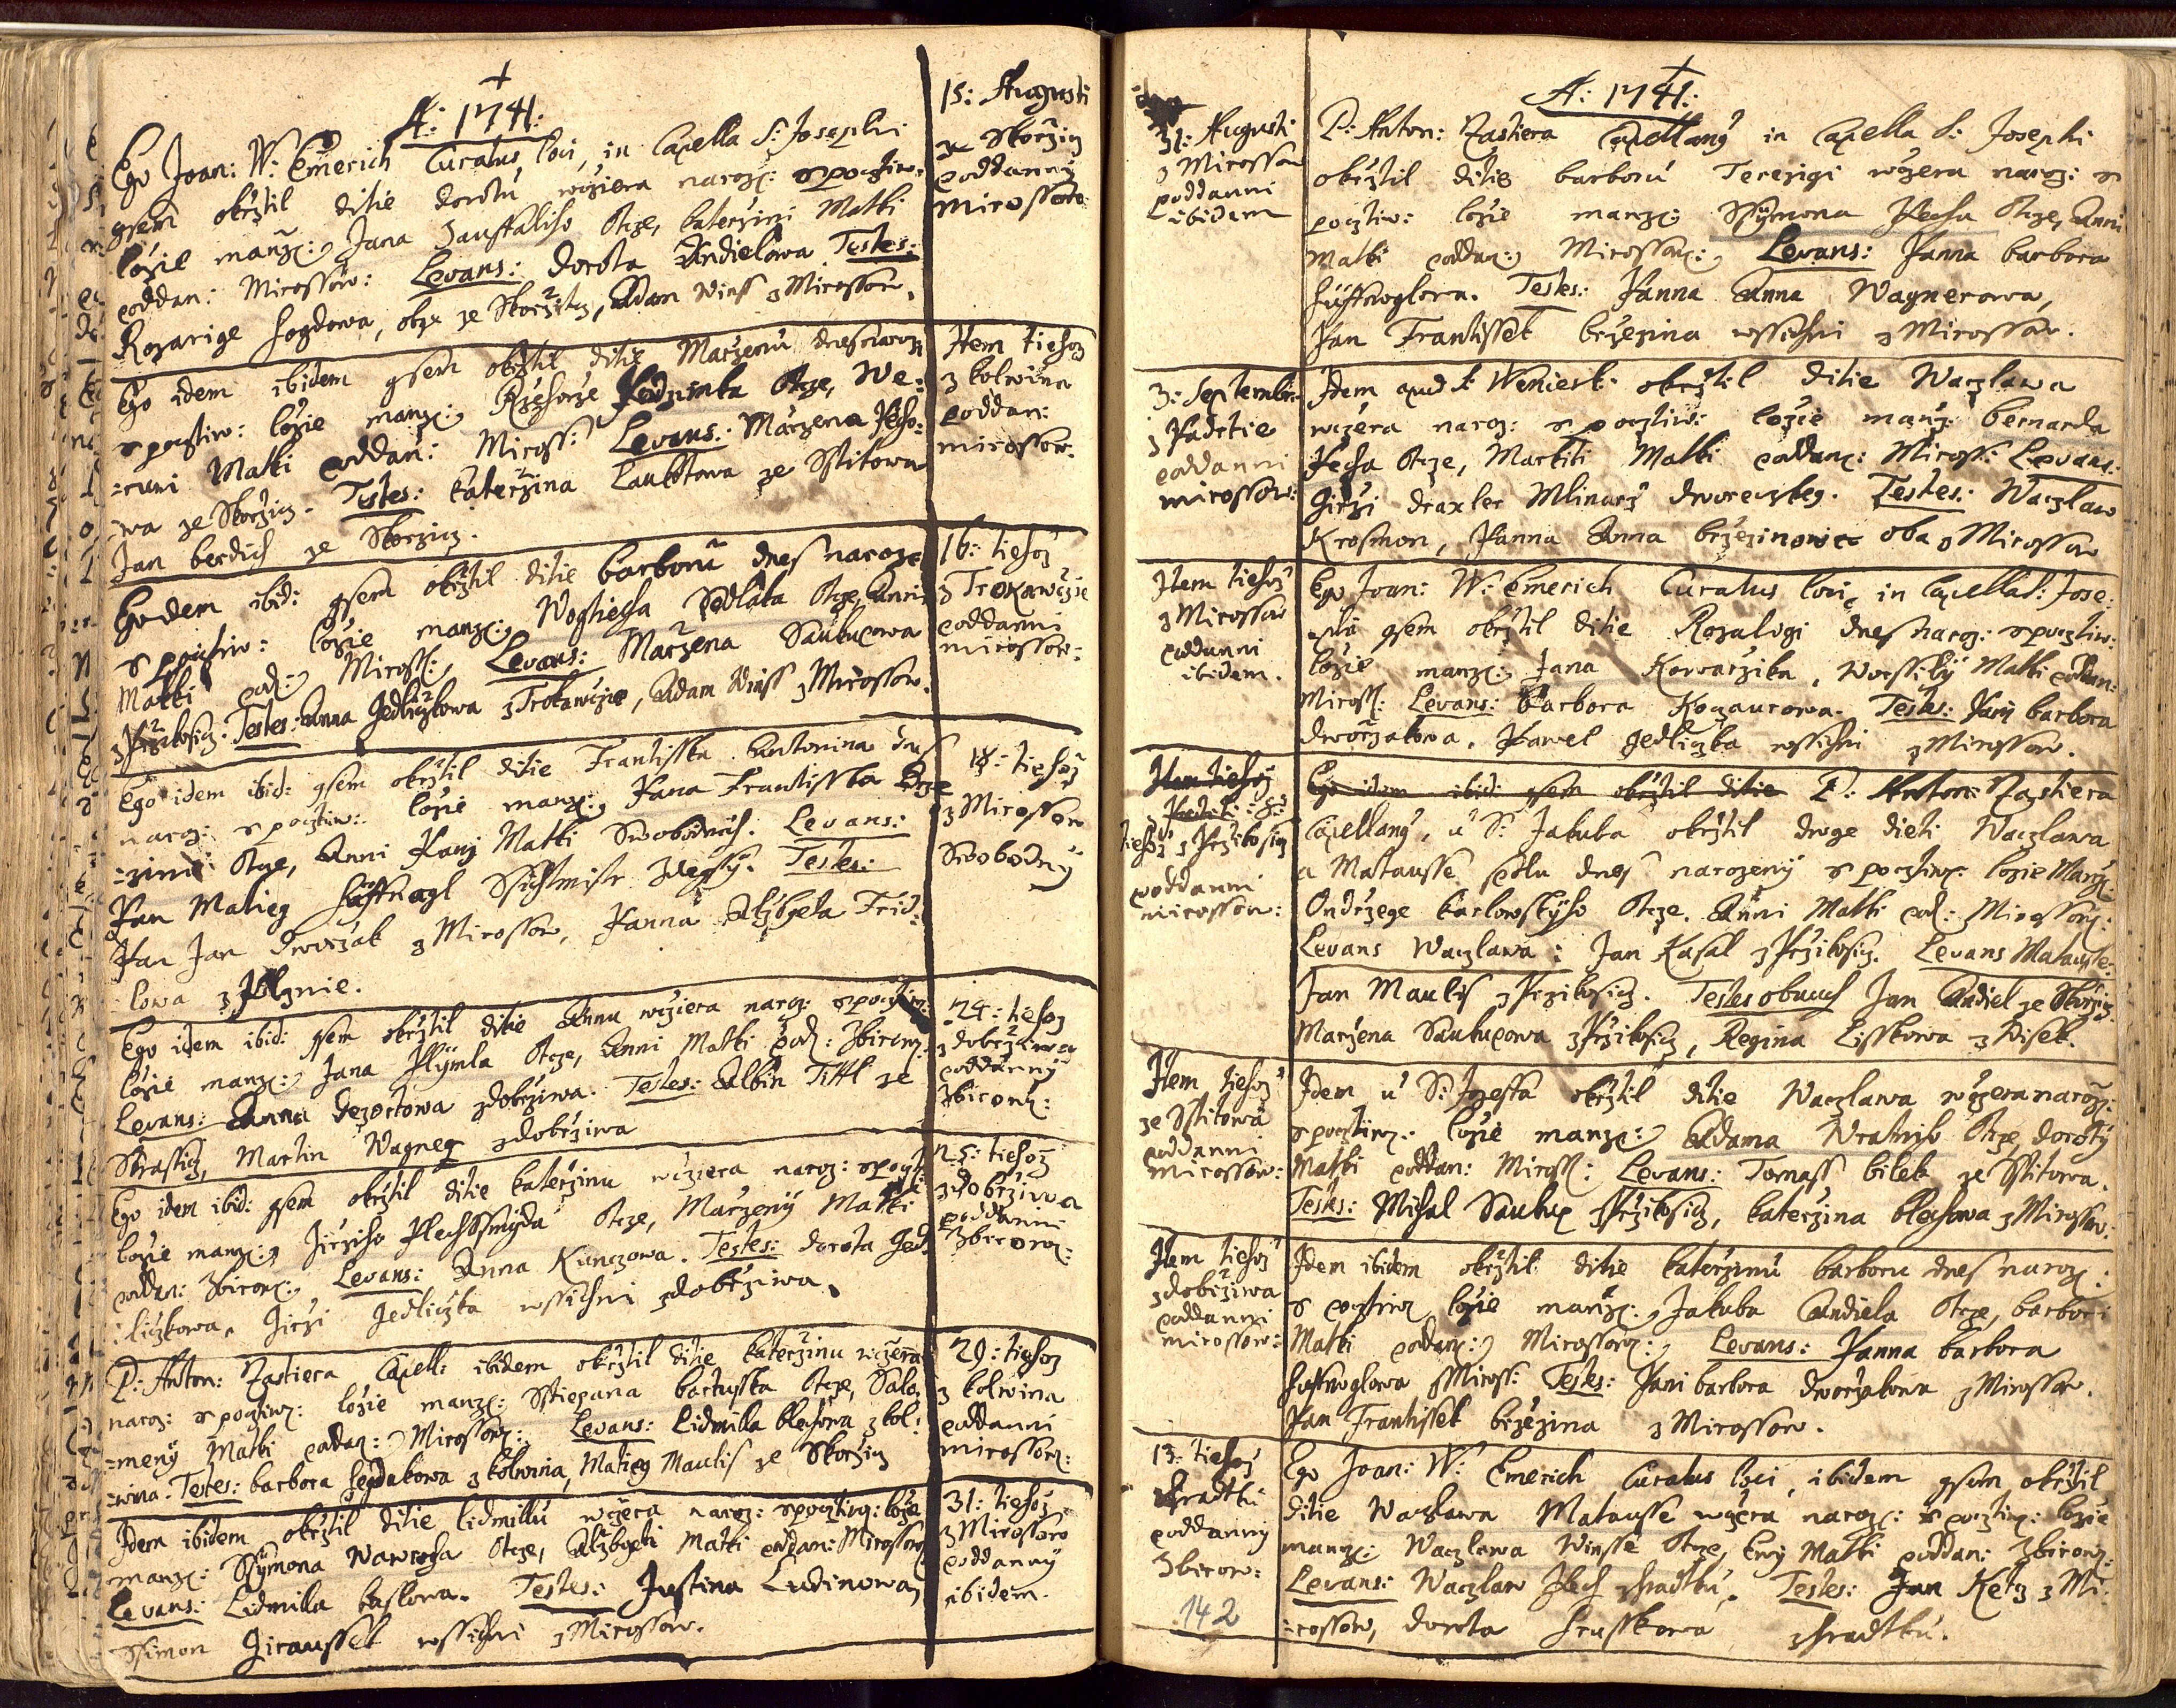 A: 1741:
Ego Joan: W: Emerich Curatus loci, in Capella S: Josephi
gsem okrztil ditie dorotu wcziera naroz: z pocztiw:
lozie manz: Jana Zauffaliho Otcze, Katerzini Matki
poddan: Mirossow: Levans: dorota Andielowa Testes:
Rozarige hogdowa, obge ze Skorzicz, Adam Winss z Mirossow.
15: Augusti
ze Skorzicz
poddanny
mirossow:
Ego idem ibidem gsem okrztil ditie Marzenu dnes naroz:
z pocztiw: lozie manz: Rzehorze Otcze, We=
=runi Matki poddan: Miross: Levans: Marzena
=wa ze Skorzicz. Testes: Katerzina Laukotowa ze Sstitowa
Jan berdich ze Skorzicz.
Item tiehoz
z kolwina
poddan:
mirossow:
Egodem ibid: gsem okrztil ditie barboru dnes naroz:
z pocztiw: lozie manz: Wogtiecha Sedlaka Otcze, Anni
Matki pod: Miross: Levans: Marzena Saukupowa
z Przikosicz. Testes: Anna Jedlicztkowa z Trokawcze, Adam Winss z Mirossow.
16: tiehoz
z Trokawcze
poddanni
mirossow:
Ego idem ibid: gsem okrztil ditie Frantisska Antonina dnes
naroz: z pocztiw: lozie manz: Pana Frantisska
=zini Otcze, Anni Pani Matki Swobodnich. Levans:
Pan Matieg Huffnagl Ssichtmistr zdegssy. Testes:
Pan Jan Dworzak z Mirossow, Panna Alzbgeta Frid=
lowa z Plznie.
18: tiehoz
z Mirossow
Swobodny
Ego idem ibid: gsem okrztil ditie Annu wcziera naroz: z pocztiw:
lozie manz: Jana Otcze, Anni Matki pod: Zbirow:
Levans: Anna Dezortowa z dobrziwa. Testes: Albin Tittl ze
Strassicz, Martin Wagner z dobrziwa
24: tiehoz
z dobrziwa
poddanny
Zbirow:
Ego idem ibid: gsem okrztil ditie Katerzinu wcziera naroz: z poczt:
lozie manz: Jirziho Plechssmyda Otcze, Marzeny Matki
poddan: Zbirow: Levans: Anna Kunczowa. Testes: dorota Jed=
liczkowa, Jirzi Jedliczka wssichni z dobrziwa.
25: tiehoz
z dobrziwa
poddanni
Zbirow:
P: Anton: Zastiera Capell: ibidem okrztil ditie Katerzinu wczera
naroz: z pocztiw: lozie manz: Sstiepana bartusska Otcze, Salo=
=meny Matki poddan: Mirossow: Levans: Lidmilla blechowa z kol=
=wina. Testes: barbora hegdukowa z kolwina, Matieg Maulis ze Skorzicz
29: tiehoz
z kolwina
poddanni
mirossow:
Idem ibidem okrztil ditie lidmillu wczera naroz: z pocztiw: lozie
manz: Ssymona Wawrocha Otcze, Alzbgeti Matki poddan: Mirossow:
Levans: Lidmilla kaslowa. Testes: Justina Ludinowa,
Ssimon Jiraussek wssichni z Mirossow.
31: tiehoz
z Mirossow
poddanny
ibidem.
A: 1741:
31: Augusti
z Mirossow
poddanni
ibidem
P: Anton: Zastiera Capellany in Capella S: Josephi
okrztil ditie barboru Terezigi wczera naroz: z
pocztiw: lozie manz: Ssymona Pecha Otcze, Anni
Matki poddan: Mirossow: Levans: Panna barbora
huffnoglowa. Testes: Panna Anna Wagnerowa,
Pan Frantissek brzezina wssichni z Mirossow.
3: Septembr:
z Padrtie
poddanni
mirossow:
Idem apud S: okrztil ditie Waczlawa
wczera naroz: z pocztiw: lozie manz: bernarda
Pecha Otcze, Markiti Matki poddan: Miross: Levans:
Girzi draxler Mlinarz dworeczkeg. Testes: Waczlaw
Krosman, Panna Anna brzezinowic oba z Mirossow
Item tiehoz
z Mirossow
poddanni
ibidem.
Ego Joan: W: Emerich Curatus loci, in Capella S: Jose=
phi gsem okrztil ditie Rozaligi dnes naroz: z pocztiw:
lozie manz: Jana Kowarzika, Worssily Matki poddan:
Miross: Levans: Barbora Kozaurowa. Testes: Pani barbora
dworzakowa, Pawel Jedliczka wssichni z Mirossow.
Item tiehoz
tiehoz z Przikosicz
poddanni
mirossow:
Ego idem ibid: gsem okrztil ditie P: Anton: Zastiera
Capellany, u S: Jakuba okrztil dwoge dieti Waczlawa
a Matausse dnes narozeny z pocztiw: lozie Manz:
Ondrzege karlowskyho Otcze, Anni Matki pod: Mirossow:
Levans Waczlawa: Jan Kasal z Przikosicz. Levans Matausse:
Jan Maulis z Przikosicz. Testes obauch Jan Andiel ze Skorzicz
Marzena Saukupowa z Przikosicz, Regina Lisskowa z Wisek.
Item tiehoz
ze Sstitowa
poddanni
mirossow:
Idem u S: Jozeffa okrztil ditie Waczlawa wczera naroz:
z pocztiw: lozie manz: Adama Wratniho Otcze, doroty
Matki poddan: Miross: Levans: Tomass bilek ze Sstitowa.
Testes: Michal Saukup z Przikosicz, katerzina blechowa z Mirossow:
Item tiehoz
z dobrziwa
poddanni
mirossow:
Idem ibidem okrztil ditie katerzinu barboru dnes naroz:
z pocztiw: lozie manz: Jakuba Andiela Otcze, barbori
Matki poddan: Mirossow: Levans: Panna barbora
huffnoglowa z Miross: Testes: Pani barbora dworzakowa z Mirossow.
Pan Frantissek brzezina z Mirossow.
13: tiehoz
z hradku
poddanny
Zbirow:
Ego Joan: W: Emerich Curatus loci, ibidem gsem okrztil
ditie Waczlawa Matausse wczera naroz: z pocztiw: lozie
manz: Waczlawa Winsse Otcze, Ewy Matki poddan: Zbirow:
Levans: Waczlaw Plech z hradku. Testes: Jan Ketz z Mi=
=rossow, dorota hrusskowa z hradku.
142